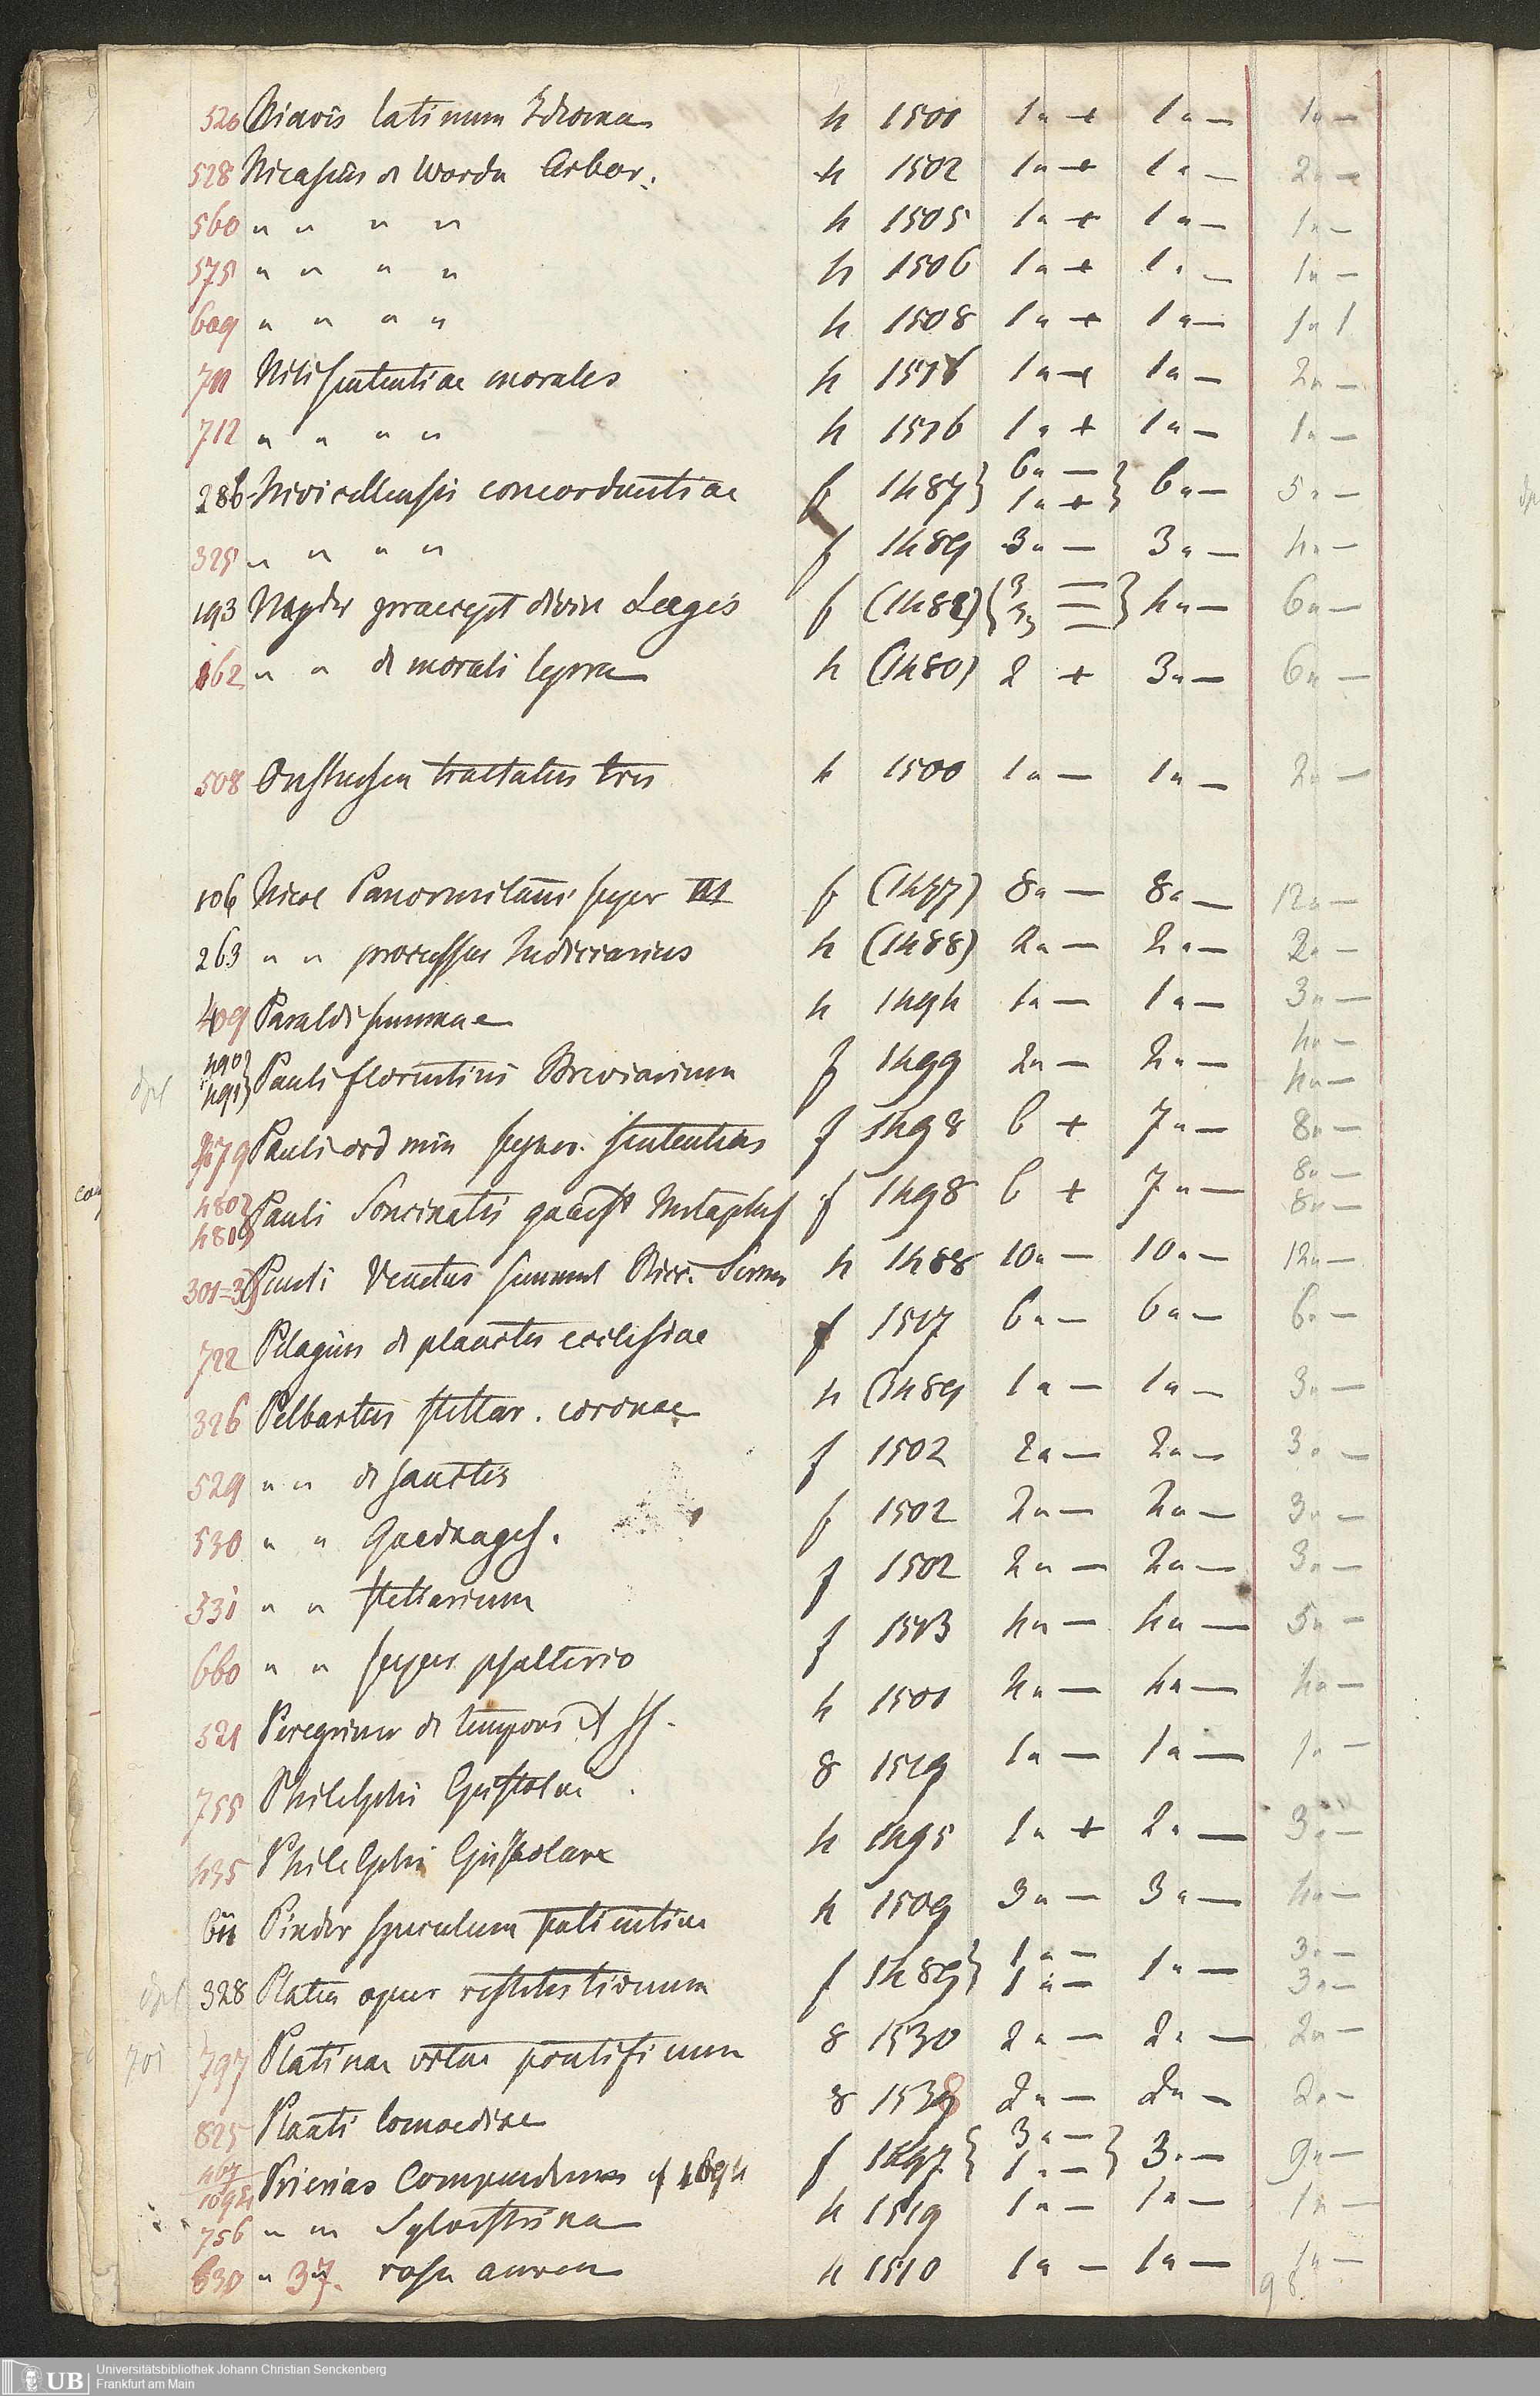 520 Niavis latinum Idioma 4 1500 1 " + 1 " — 1 " —
528 Nicasius de Worda Arbor. 4 1502 1 " + 1 " — 2 " —
560 " " " " 4 1505 1 " + 1 " — 1 " —
575 " " " " 4 1506 1 " + 1 " — 1 " —
609 " " " " 4 1508 1 " + 1 " — 1 " 1
711 Nili sententiae morales 4 1516 1 " + 1 " — 2 " —
712 " " " " 4 1516 1 " + 1 " — 1 " —
286 Nivicellensis concordantiae f 1487 } 6 " — 1 " + } 6 " — 5 " —
325 " " " " f 1489 3 " — 3 " — 4 " —
193 praecept divin Legis f (1482) { 3 — 3 — } 4 " — 6 " —
162 " " de morali lepra 4 (1480) 2 + 3 " — 6 " —
508 tractatus tres 4 1500 1 " — 1 " — 2 " —
106 Nicol Panormitani super III f (1477) 8 " — 8 " — 12 " —
263 " " processus Iudiciarius 4 (1488) 2 " — 2 " — 2 " —
409 Paraldi summae 4 1494 1 " — 1 " — 3 " —
dpl 490 491 } Pauli florentini Breviarium f 1499 2 " — 2 " — 4 " — 4 " —
479 Pauli ord min super. sententias f 1498 6 + 7 " — 8 " —
480 480b } Pauli Soncinatis quaest Metaphys f 1498 6 + 7 " — 8 " — 8 " —
301=3 Pauli Venetus 4 1488 10 " — 10 " — 12 " —
722 Pelagius de planctu ecclesiae f 1517 6 " — 6 " — 6 " —
326 Pelbartus stellar. coronae 4 (1489 1 " — 1 " — 3 " —
529 " " de sanctis f 1502 2 " — 2 " — 3 " —
530 " " Quadrages. f 1502 2 " — 2 " — 3 " —
531 " " stellarium f 1502 2 " — 2 " — 3 " —
660 " " super psalterio f 1513 4 " — 4 " — 5 " —
521 Peregrinus de tempore et SS. 4 1501 4 " — 4 " — 4 " —
755 Philelphi Epistolae 8 1519 1 " — 1 " — 1 " —
435 Philelphi Epistolare 4 1495 1 " + 2 " — 3 " —
611 Pinder speculum patientiae 4 1509 3 " — 3 " — 4 " —
dpl 328 Platea opus restitutionum f 1489 } 1 " — 1 " — 1 " — 3 " — 3 " —
701 797 Platinae vitae pontificum 8 1530 2 " — 2 " — 2 " —
825 Plauti Comoediae 8 1538 2 " — 2 " — 2 " —
467 1094 Prierias Compendium cf 1894 f 1497 { 3 " — 1 " — } 3 " — 9 " —
756 " " Sylvestrina 4 1519 1 " — 1 " — 1 " —
630 " 37. rosa aurea 4 1510 1 " — 1 " — 1 " —
98.
UB Universitätsbibliothek Johann Christian Senckenberg
Frankfurt am Main